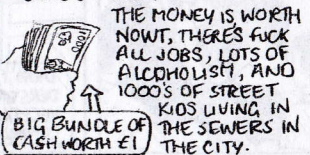 THE MONEY IS WORTH
NOWT, THERES FUCK
ALL JOBS, LOTS OF
ALCOHOLISM, AND
1000'S OF STREET
KIDS LIVING IN
THE SEWERS IN
THE CITY.
BIG BUNDLE OF
CASH WORTH £1